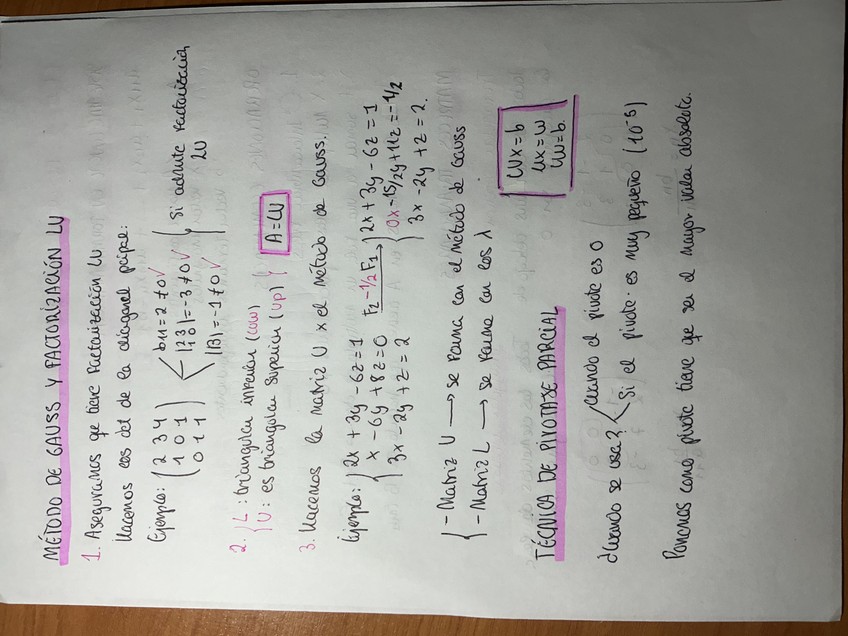 MÉTODO DE GAUSS Y FACTORIZACIÓN LU
1. Aseguramos que tiene Factorización LU.
Hacemos los det de la diagonal pcipal:
Ejemplo: (2 3 4 / 1 0 1 / 0 1 1) b11 = 2 ≠ 0 ✓
|2 3 / 1 0| = -3 ≠ 0 ✓
|B| = -1 ≠ 0 ✓
Sí admite Factorización LU
2. L: triangular inferior (low)
U: es triangular superior (up)
A = LU
3. Hacemos la matriz U x el método de Gauss.
Ejemplo: 2x + 3y - 6z = 1
x - 6y + 8z = 0
3x - 2y + z = 2
F2 - 1/2 F1
2x + 3y - 6z = 1
0x - 15/2y + 11z = -1/2
3x - 2y + z = 2.
- Matriz U → se forma con el método de Gauss
- Matriz L → se forma con los λ
LUx = b
Ux = w
Lw = b.
TÉCNICA DE PIVOTAJE PARCIAL
¿Cuando se usa? Cuando el pivote es 0
Si el pivote es muy pequeño (10⁻⁵)
Ponemos como pivote tiene que ser el mayor valor absoluto.